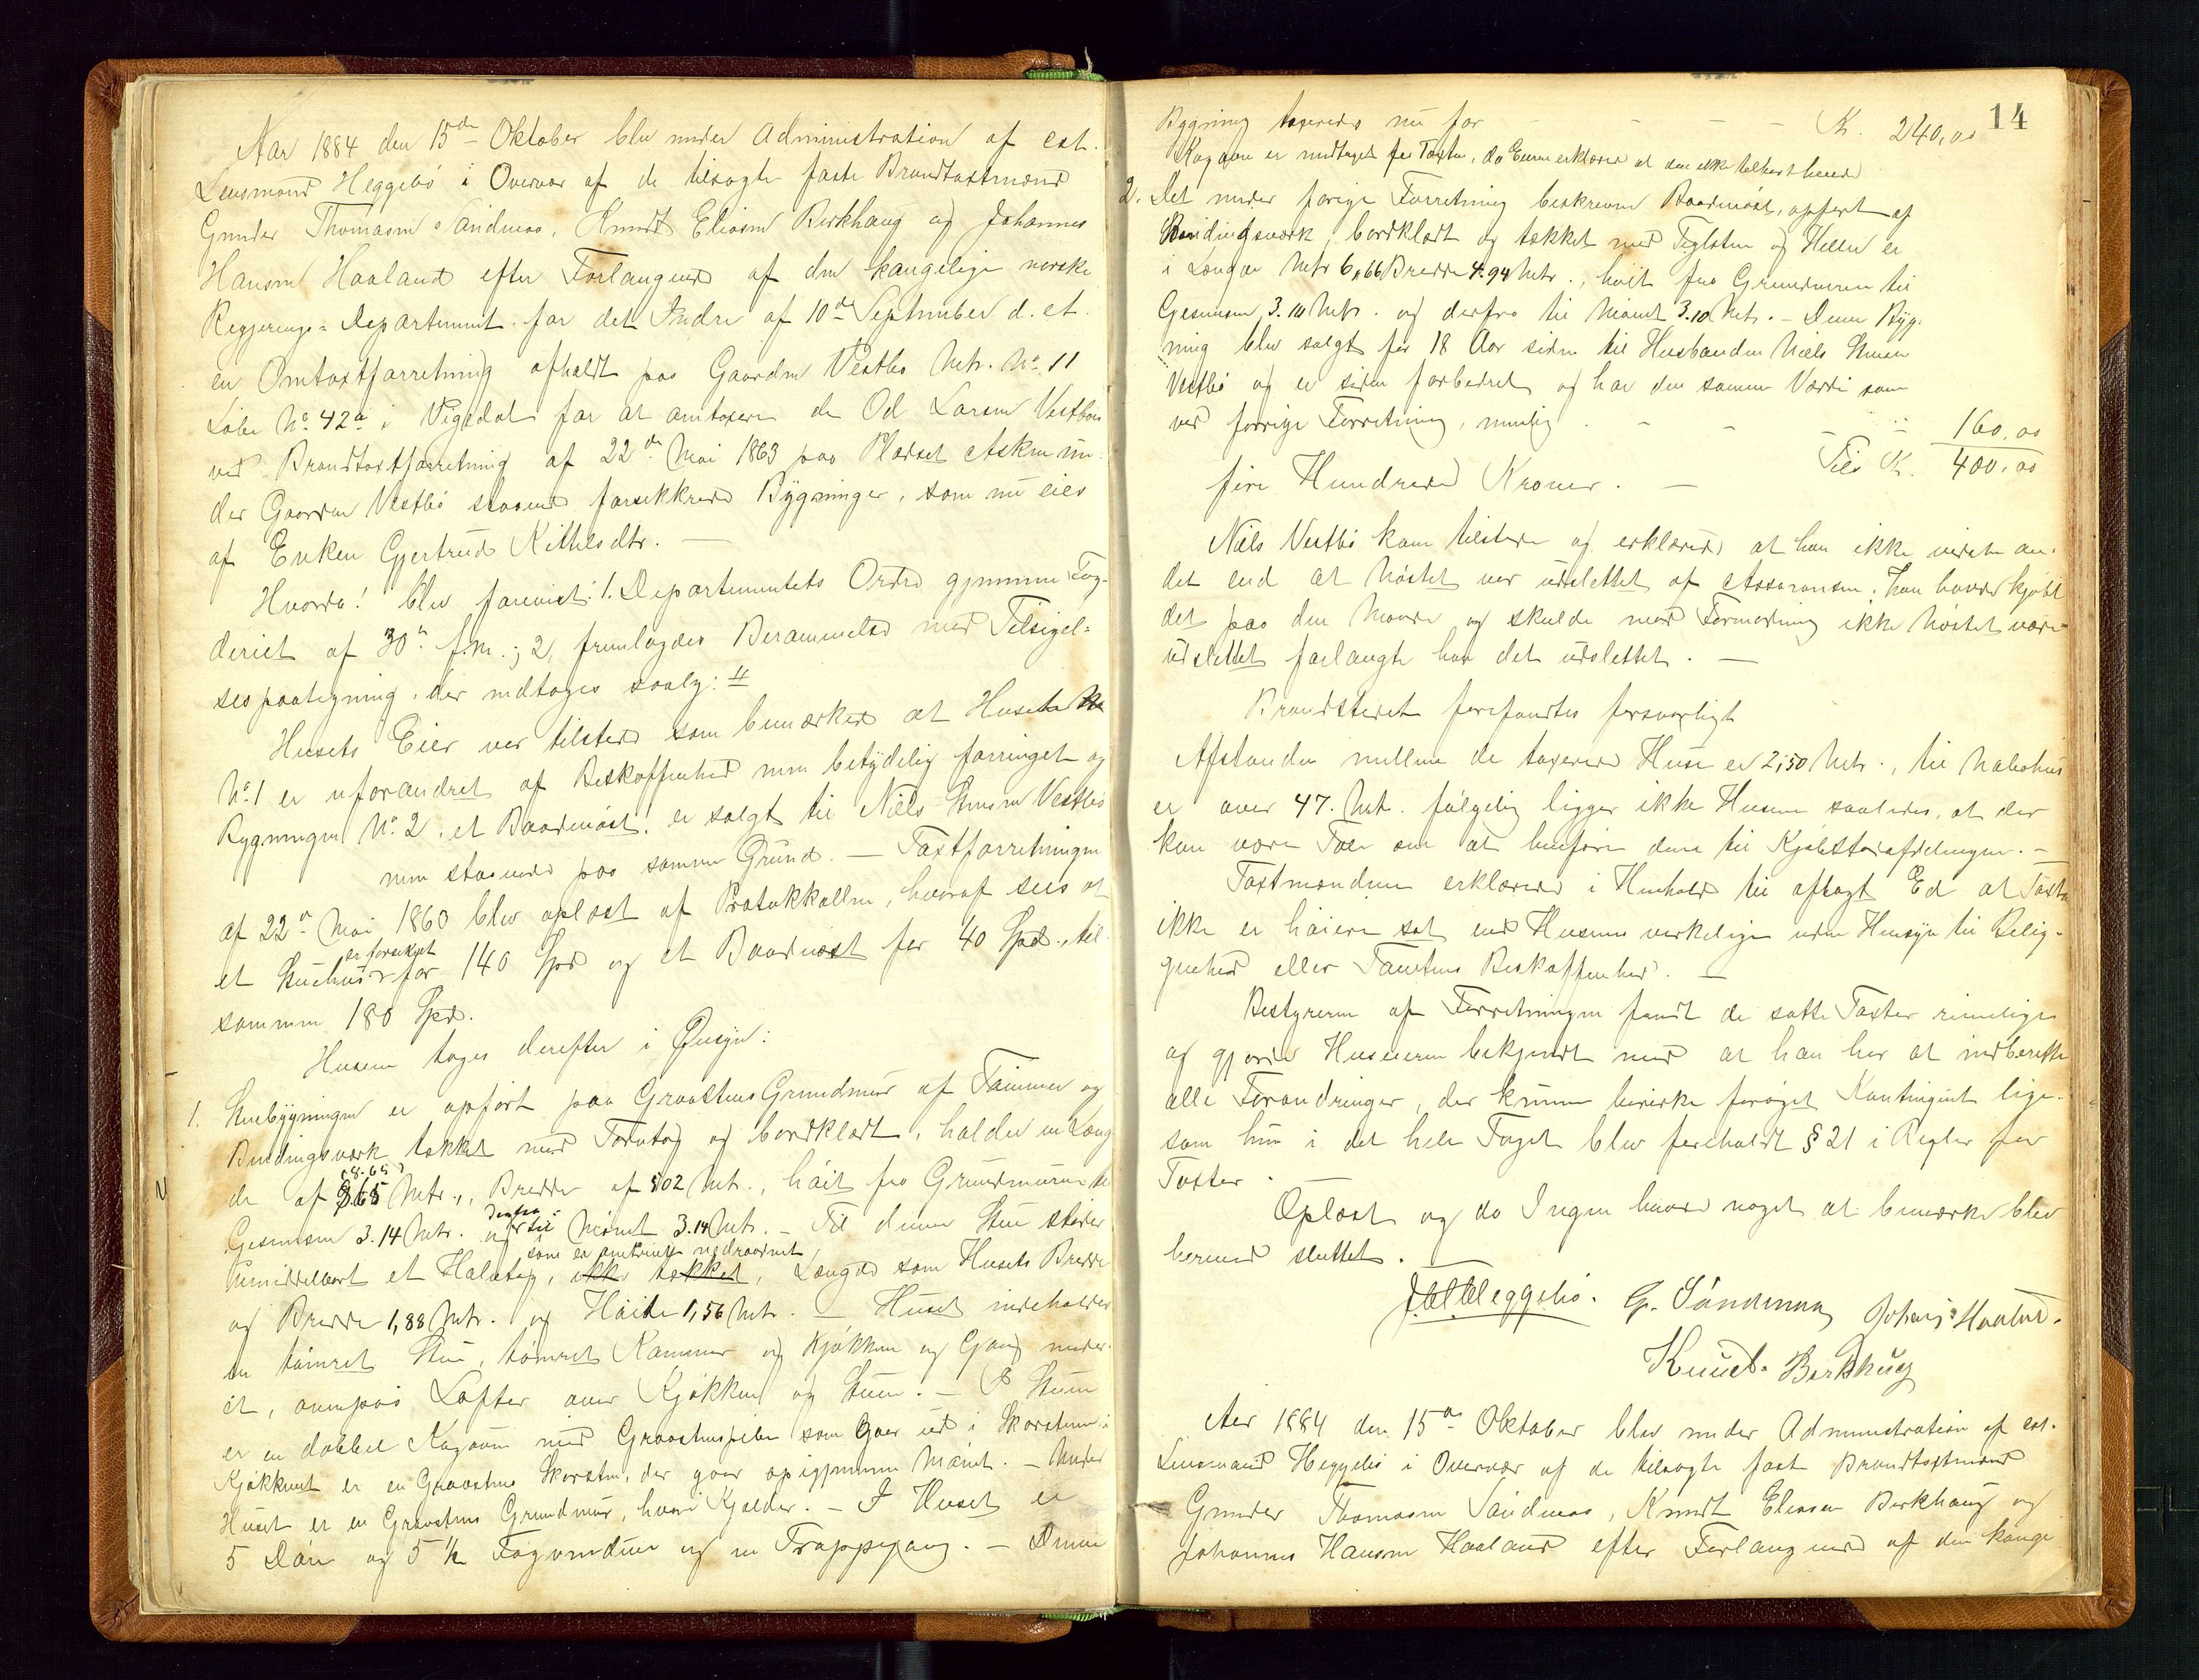 Aar 1884 den 15de Oktober blev under Administration af cst.
Lensmand Heggebö i Overvær af de tilsagte faste Brandtaxtmænd
Gunder Thomasen Sandmoe, Knudt Eliasen Birkhaug og Johannes
Hansen Haaland efter Forlangende af den kongelige norske
Regjerings-Departement for det Indre af 10de September d. A.
en Omtaxtforretning afholdt paa Gaarden Vestbø Mtr. No. 11
Löbe No. 42a i Vigedal for at omtaxere de Od Larsen Vestbøe
ved Brandtaxtforretning af 22de Mai 1863 paa Pladset Asken un-
der Gaarden Vestbö staaende forsikkrede Bygninger, som nu eies
af Enken Gjertrud Kittelsdtr. —
Hvorda! blev forevist: 1. Departementets Ordre gjennem Fog-
deriet af 30te f.M.; 2, fremlagdes Berammelse med Tilsigel-
sespaategning, der indtages saaly: #
Husets Eier var tilstede som bemærkede at Huset
No. 1 er uforandret af Beskaffenhed men betydelig forringet og
Bygningen No. 2, et Baadnöst, er solgt til Niels Vestbö
men staaende paa samme Grund. — Taxtforretningen
af 22de Mai 1863 blev oplæst af Protokkollen, hvoraf sees at
er forsikret
et Stuehus for 140 Spd og et Baadnöst for 40 Spd., til-
sammen 180 Spd.
Husene toges derefter i Øiesyn:
1. Stuebygningen er opfört paa Graastens Grundmur af Tømmer og
Bindingsværk tækket med Torvtag og bordklædt, holder en Læng
(8.65)
de af 8.65 Mtr., Bredde af 502 Mtr., höit fra Grundmuren til
derfra
Gesimsen 3.14 Mtr. og til Mönet 3.14 Mtr. — Til denne Stue støder
som er omtrent nedraadnet,
umiddelbart et Halvtag, ikke tækket, Længde som Husets Bredde
og Bredde 1,88 Mtr. og Höide 1,56 Mtr. — Huset indeholder
en tömret Stue, tömret Kammer og Kjökken og Gang neder-
st, ovenpaa Lofter over Kjökken og Stuen. — I Stuen
er en dobbel Kagovn med Graastenspibe som gaar ud i Skorsten i
Kjökkenet er en Graastens Skorsten, der gaar op igjennem Mönet. — Under
Huset er en Graastens Grundmur, hvori Kjelder. — I Huset er
5 Döre og 5 ½ Fagvinduer og en Trappegang. — Denne
14
Bygning taxeredes nu for - - - K. 240,00
Kagovn er undtaget fra Taxten, da Eieren erklærede at den ikke tilhørte hende
2. Det under forige Forretning beskrevne Baadnöst, opfört af
Bindingsværk, bordklædt og tækket med Teglsten og Heller er
i Længde Mtr 6,66 Bredde 4.94 Mtr., höit fra Grundmuren til
Gesimsen 3.10 Mtr. og derfra til Mönet 3.10 Mtr. — Denne Byg-
ning blev solgt for 18 Aar siden til Husbonden Niels
Vestbö og er siden forbedret og har den samme Værdi som
ved forrige Forretning, nemlig - - - 160,00
Tils K. 400,00
fire Hundrede Kroner. —
Niels Vestbö kom tilstede og erklærede at han ikke vidste an-
det end at Nöstet var udslettet af Assurancen, han havde kjöbt
det paa den Maade og skulde mod Formodning ikke Nöstet være
udslettet forlangte han det udslettet. —
Brandstedet forefandtes forsvarligt
Afstanden mellem de taxerede Huse er 2,50 Mtr., til Nabohus
er over 47. Mtr. fölgelig ligger ikke Husene saaledes, at der
kan være Tale om at henföre dem til Kjöbstadafdelingen. —
Taxtmændene erklærede i Henhold til aflagt Ed at Taxten
ikke er höiere sat end Husenes virkelige uden Hensyn til Belig-
genhed eller Tomtens Beskaffenhed. —
Bestyreren af Forretningen fandt de satte Taxter rimelige
og gjorde Huseieren bekjendt med at han har at indberette
alle Forandringer, der kunne bevirke foröget Kontingent lige-
som hun i det hele Taget blev foreholdt § 21 i Regler for
Taxter.
Oplæst og da Ingen havde noget at bemærke blev
hermed sluttet. —
Heggebö. G. Sandmoe Johans Haaland.
Knud. Birkhaug
Aar 1884 den 15de Oktober blev under Administration af cst.
Lensmand Heggebö i Overvær af de tilsagte faste Brandtaxtmænd
Gunder Thomasen Sandmoe, Knudt Eliasen Birkhaug og
Johannes Hansen Haaland efter Forlangende af den konge